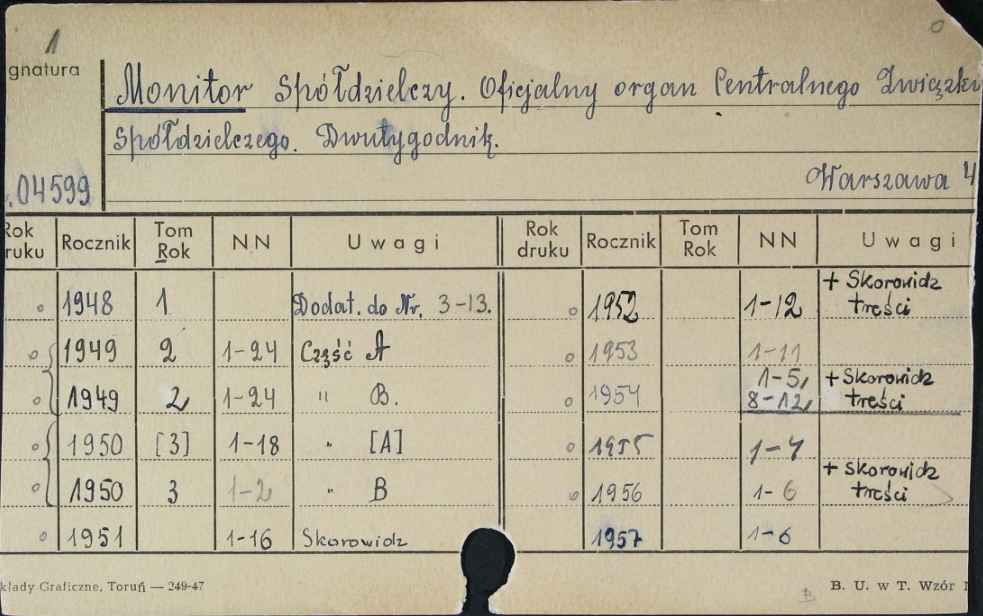 1
gnatura
Monitor Spółdzielczy. Oficjalny organ Centralnego Związku
Spółdzielczego. Dwutygodnik.
Warszawa 4
04599
Rok druku Rocznik Tom Rok NN Uwagi Rok druku Rocznik Tom Rok NN Uwagi
1948 1 Dodat. do Nr. 3-13. 1952 1-12 + Skorowidz treści
1949 2 1-24 Część A 1953 1-11
1949 2 1-24 " B. 1954 1-5, 8-12, + Skorowidz treści
1950 [3] 1-18 " [A] 1955 1-7
1950 3 1-2 " B 1956 1-6 + Skorowidz treści
1951 1-16 Skorowidz 1957 1-6
kłady Graficzne, Toruń — 249-47 B. U. w T. Wzór